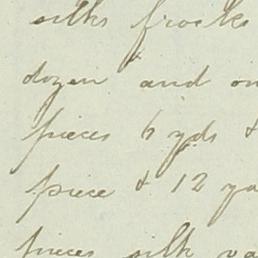 silks frocks
dozen and on
pieces 6 yds &
piece & 12 ya
pieces silk va